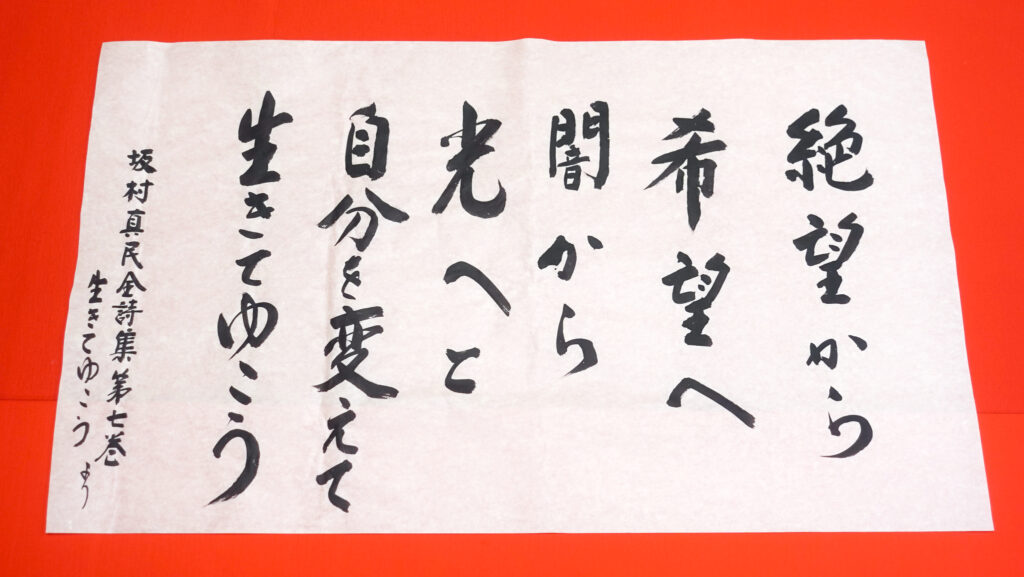 絶望から
希望へ
闇から
光へと
自分を変えて
生きてゆこう
坂村真民全詩集第七巻
生きてゆこう より